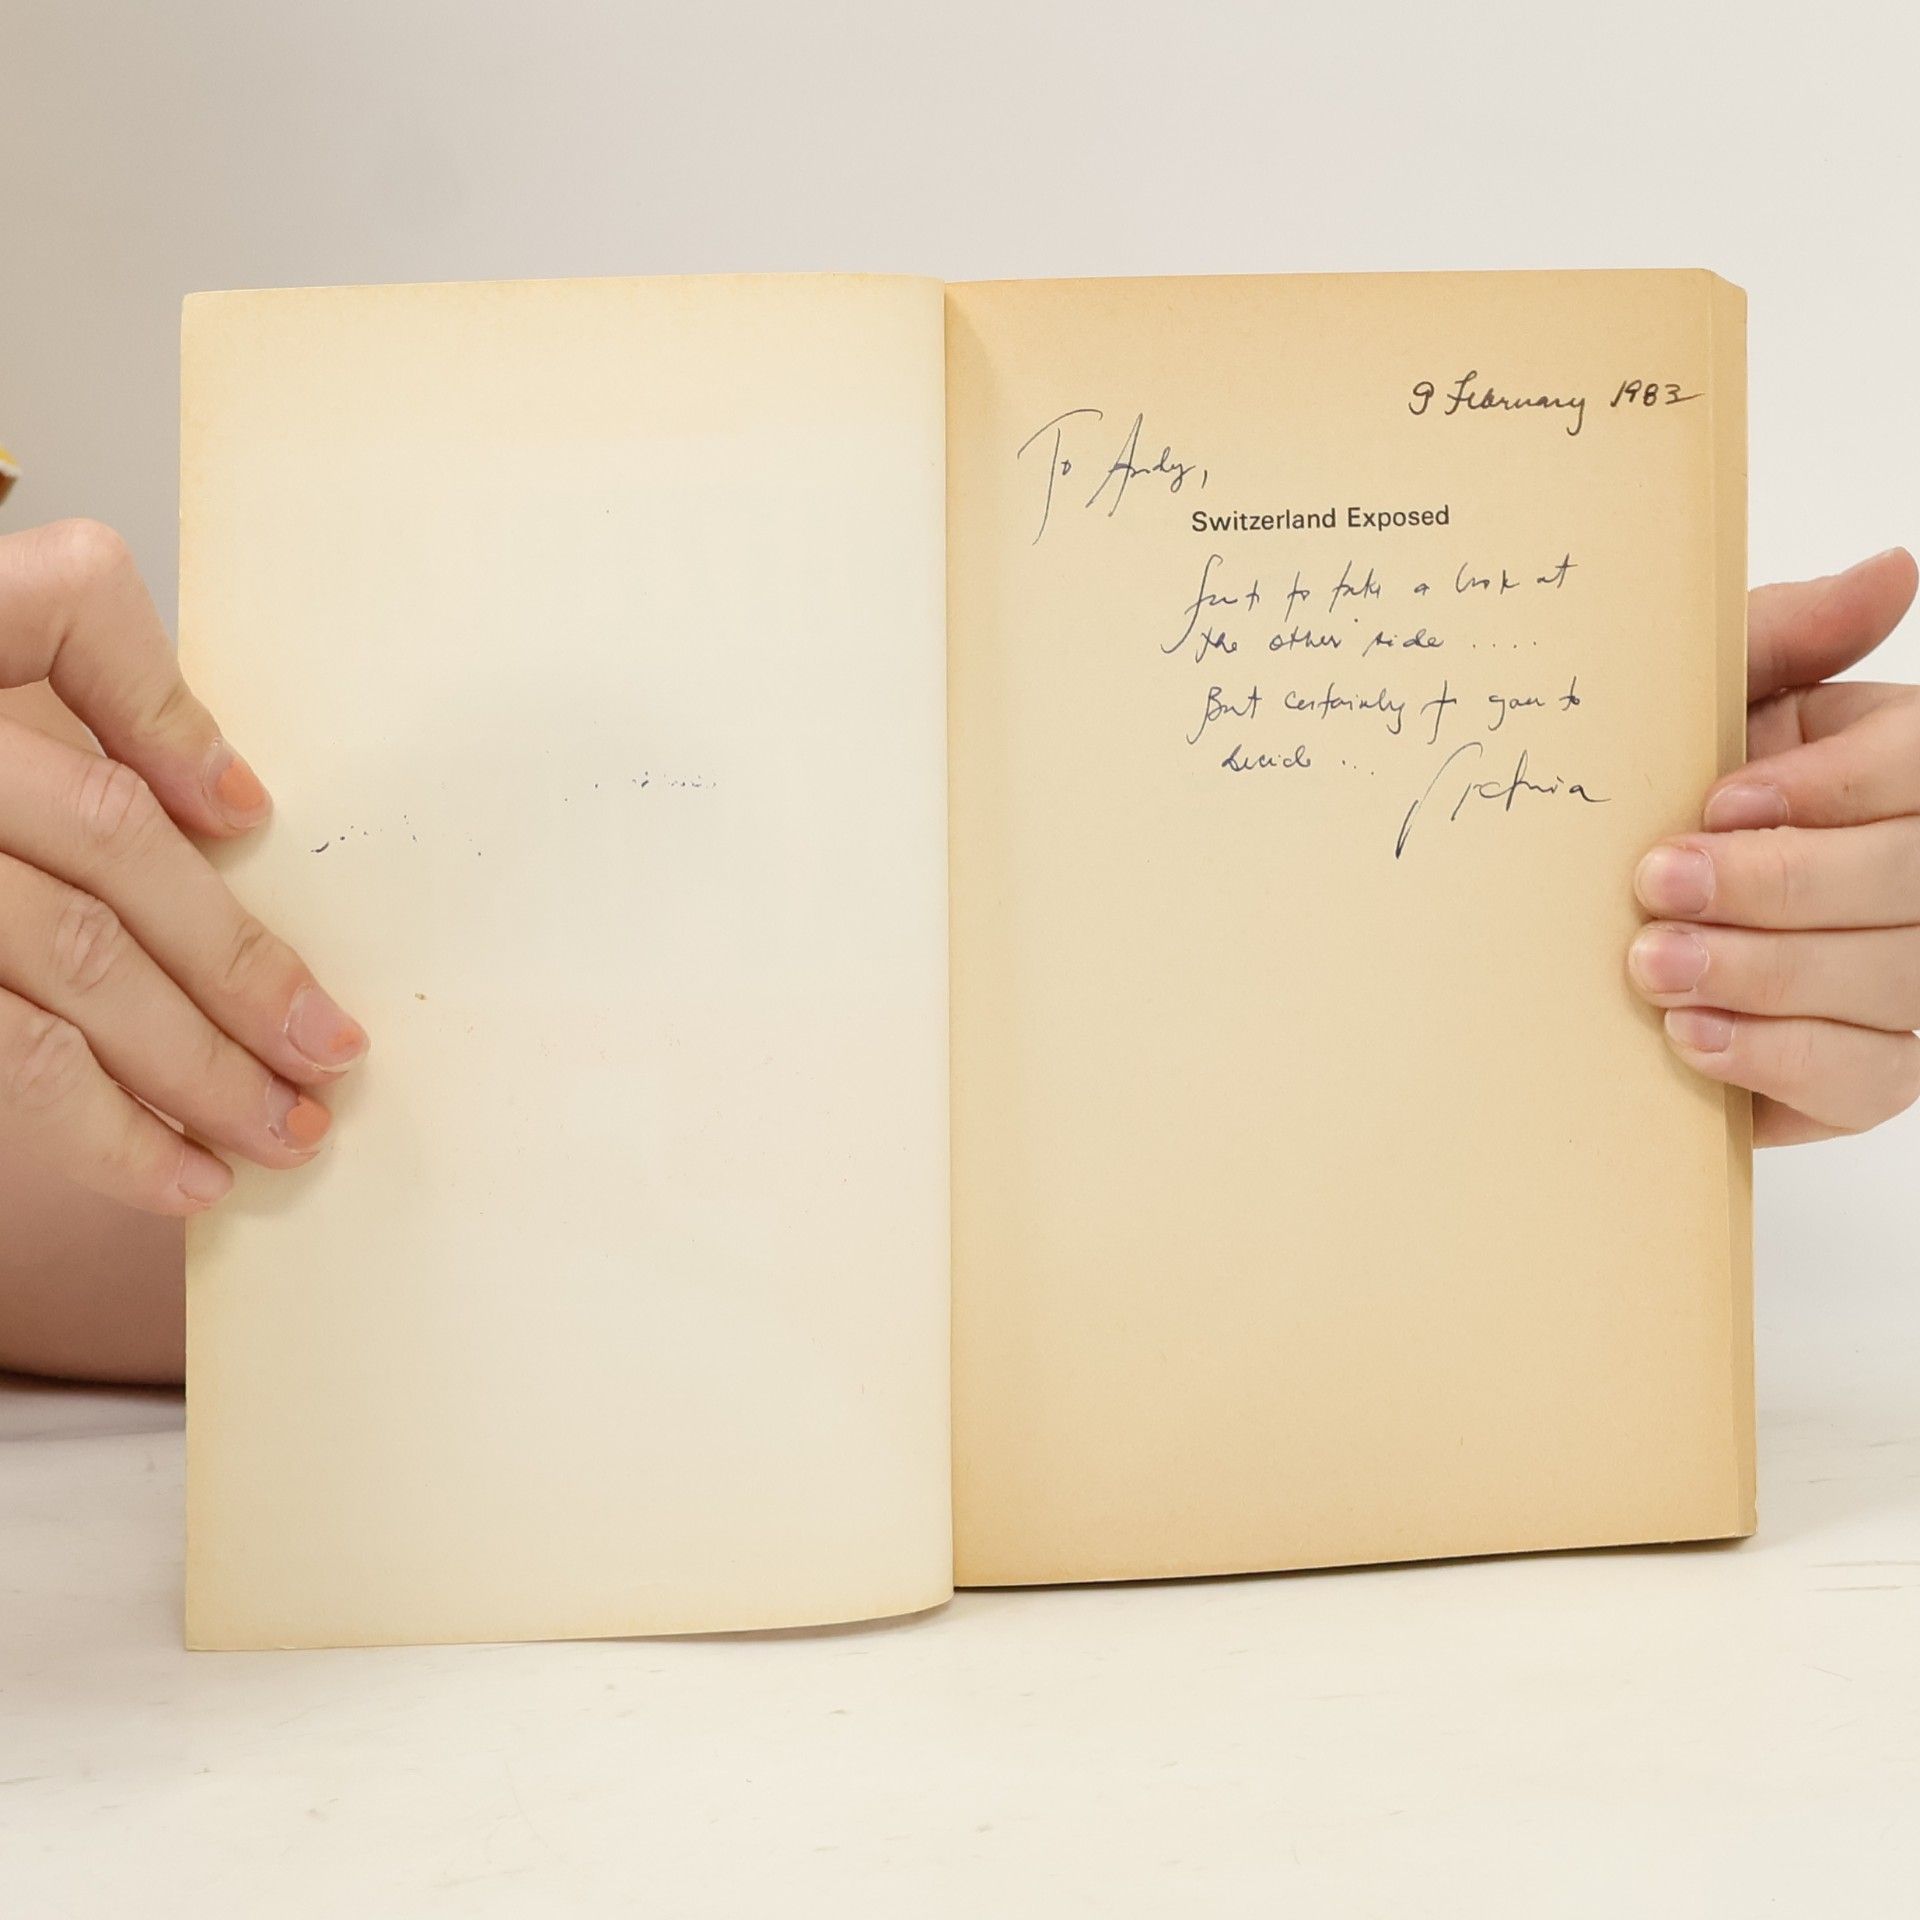 9 February 1983
To Andy,
Switzerland Exposed
Just to take a look at
the other side ....
But certainly to you to
decide ...